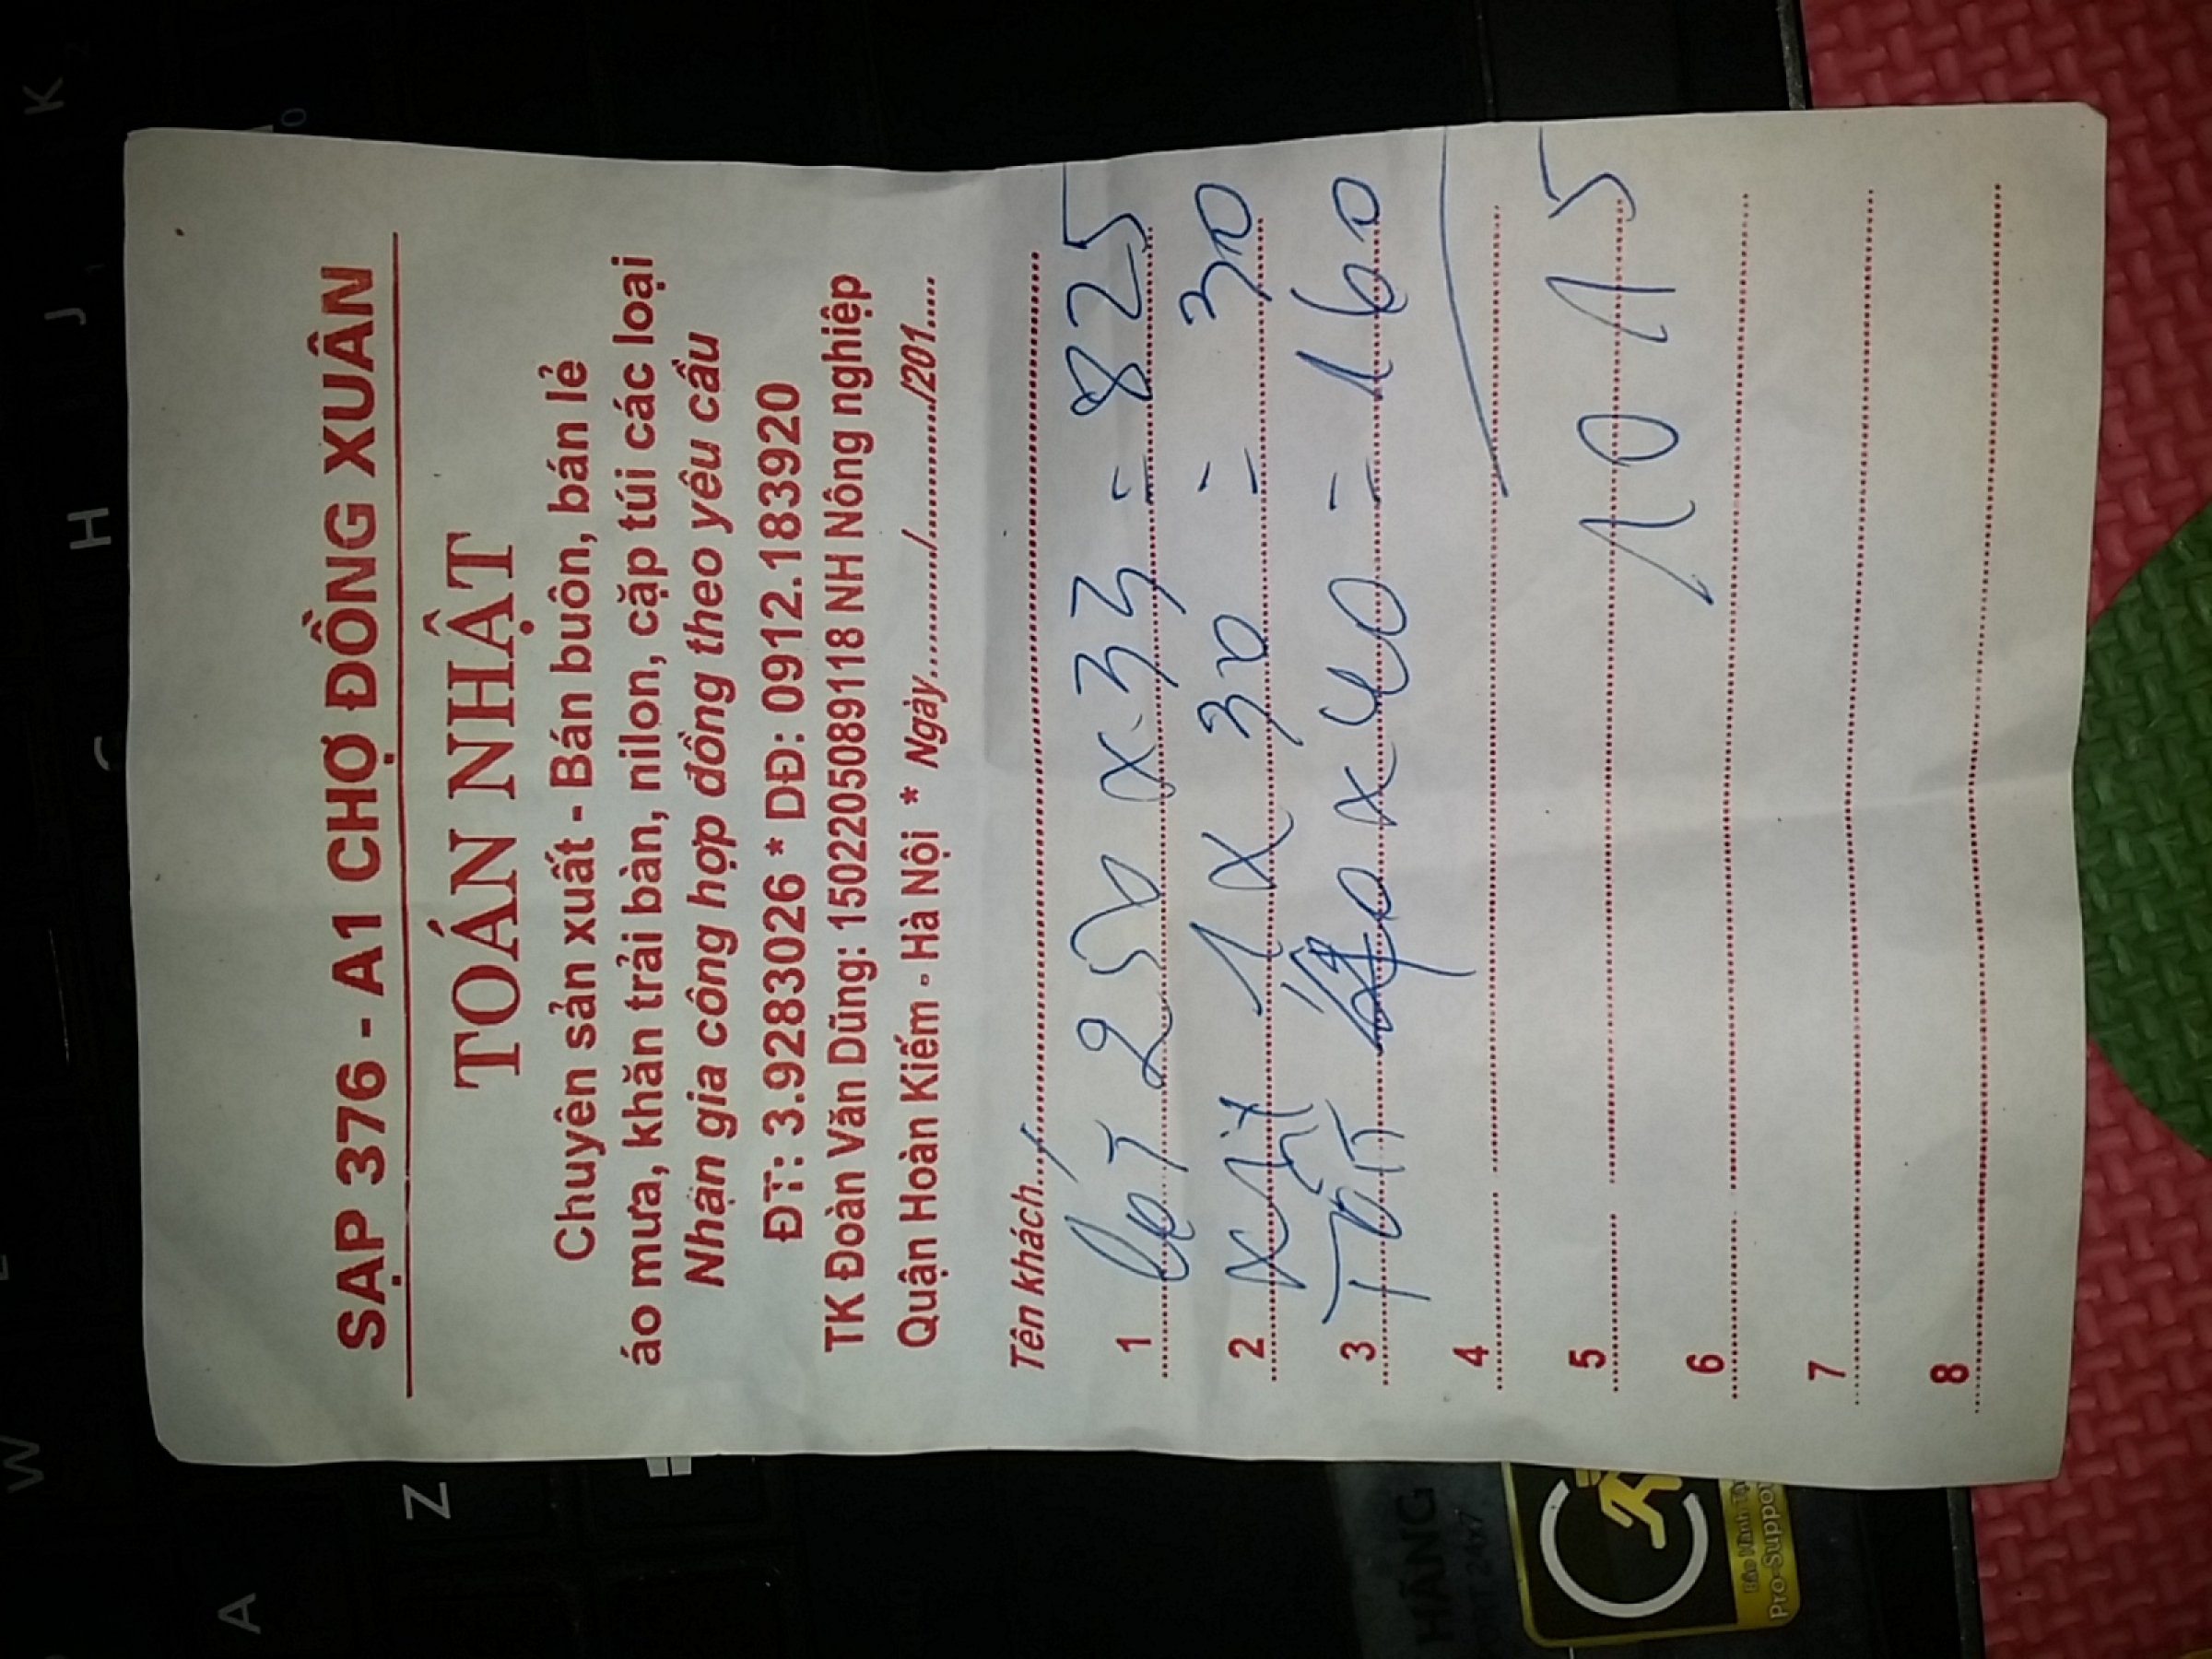 SẠP 376 - A1 CHỢ ĐỒNG XUÂN
TOÁN NHẬT
Chuyên sản xuất - Bán buôn, bán lẻ
áo mưa, khăn trải bàn, nilon, cặp túi các loại
Nhận gia công hợp đồng theo yêu cầu
ĐT: 3.9283026 * DĐ: 0912.183920
TK Đoàn Văn Dũng: 1502205089118 NH Nông nghiệp
Quận Hoàn Kiếm - Hà Nội * Ngày.........../.........../201....
Tên khách
1 x 33 = 825
2 1 x 30 = 30
3 Túi x 40 = 160
4
5 1015
6
7
8
K
J
H
W
Z
A
HÃNG
24x7
Pro-Suppor